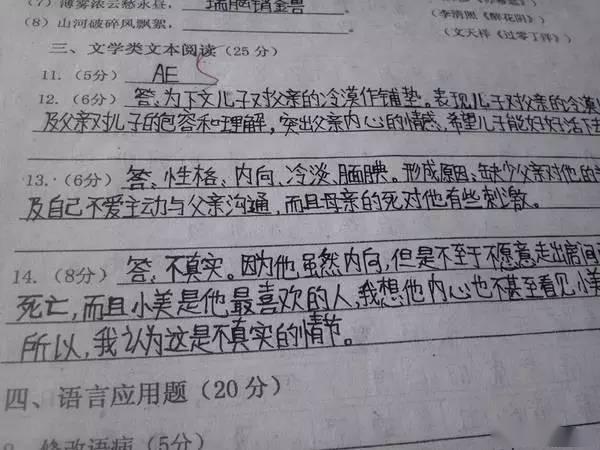 (7) 薄雾浓云愁永昼, 瑞脑销金兽
(李清照《醉花阴》)
(8) 山河破碎风飘絮,
(文天祥《过零丁洋》)
三、文学类文本阅读(25分)
11. (5分) AE
12. (6分) 答:为下文儿子对父亲的冷漠作铺垫。表现儿子对父亲的冷漠
及父亲对儿子的包容和理解,突出父亲内心的情感,希望儿子能好好活下去
13. (6分) 答:性格、内向、冷淡、腼腆。形成原因:缺少父亲对他的
及自己不爱主动与父亲沟通,而且母亲的死对他有些刺激。
14. (8分) 答:不真实。因为他虽然内向,但是不至于不愿意走出房间
死亡,而且小美是他最喜欢的人,我想他内心也不甚至看见小美
所以,我认为这是不真实的情节。
四、语言应用题(20分)
修改语病(5分)